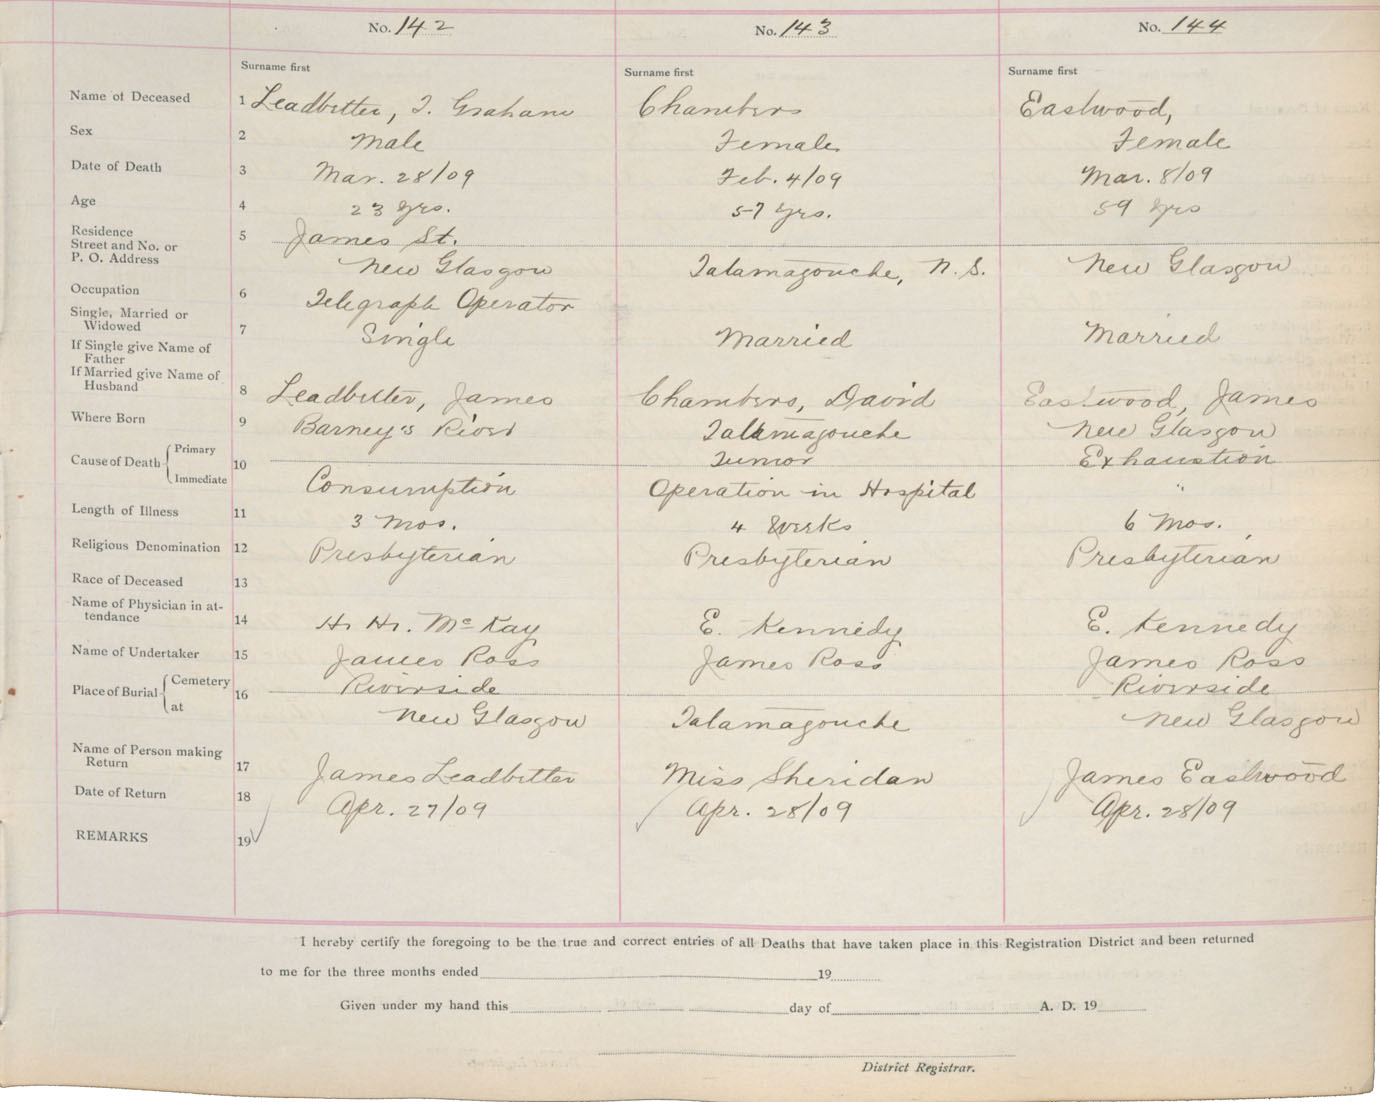 No. 142 No. 143 No. 144
Surname first Surname first Surname first
Name of Deceased 1 Leadbetter, J. Graham Chambers Eastwood,
Sex 2 Male Female Female
Date of Death 3 Mar. 28/09 Feb. 4/09 Mar. 8/09
Age 4 23 yrs. 57 yrs. 59 yrs
Residence 5 James St.
Street and No. or
P. O. Address New Glasgow Tatamagouche, N. S. New Glasgow
Occupation 6 Telegraph Operator
Single, Married or
Widowed 7 Single Married Married
If Single give Name of
Father
If Married give Name of
Husband 8 Leadbetter, James Chambers, David Eastwood, James
Where Born 9 Barney's River Tatamagouche New Glasgow
Cause of Death Primary 10 Tumor Exhaustion
Immediate Consumption Operation in Hospital "
Length of Illness 11 3 Mos. 4 Weeks 6 Mos.
Religious Denomination 12 Presbyterian Presbyterian Presbyterian
Race of Deceased 13
Name of Physician in at-
tendance 14 H. H. McKay E. Kennedy E. Kennedy
Name of Undertaker 15 James Ross James Ross James Ross
Place of Burial Cemetery 16 Riverside Riverside
at New Glasgow Tatamagouche New Glasgow
Name of Person making
Return 17 James Leadbetter Miss Sheridan James Eastwood
Date of Return 18 Apr. 27/09 Apr. 28/09 Apr. 28/09
REMARKS 19
I hereby certify the foregoing to be the true and correct entries of all Deaths that have taken place in this Registration District and been returned
to me for the three months ended 19
Given under my hand this day of A. D. 19
District Registrar.